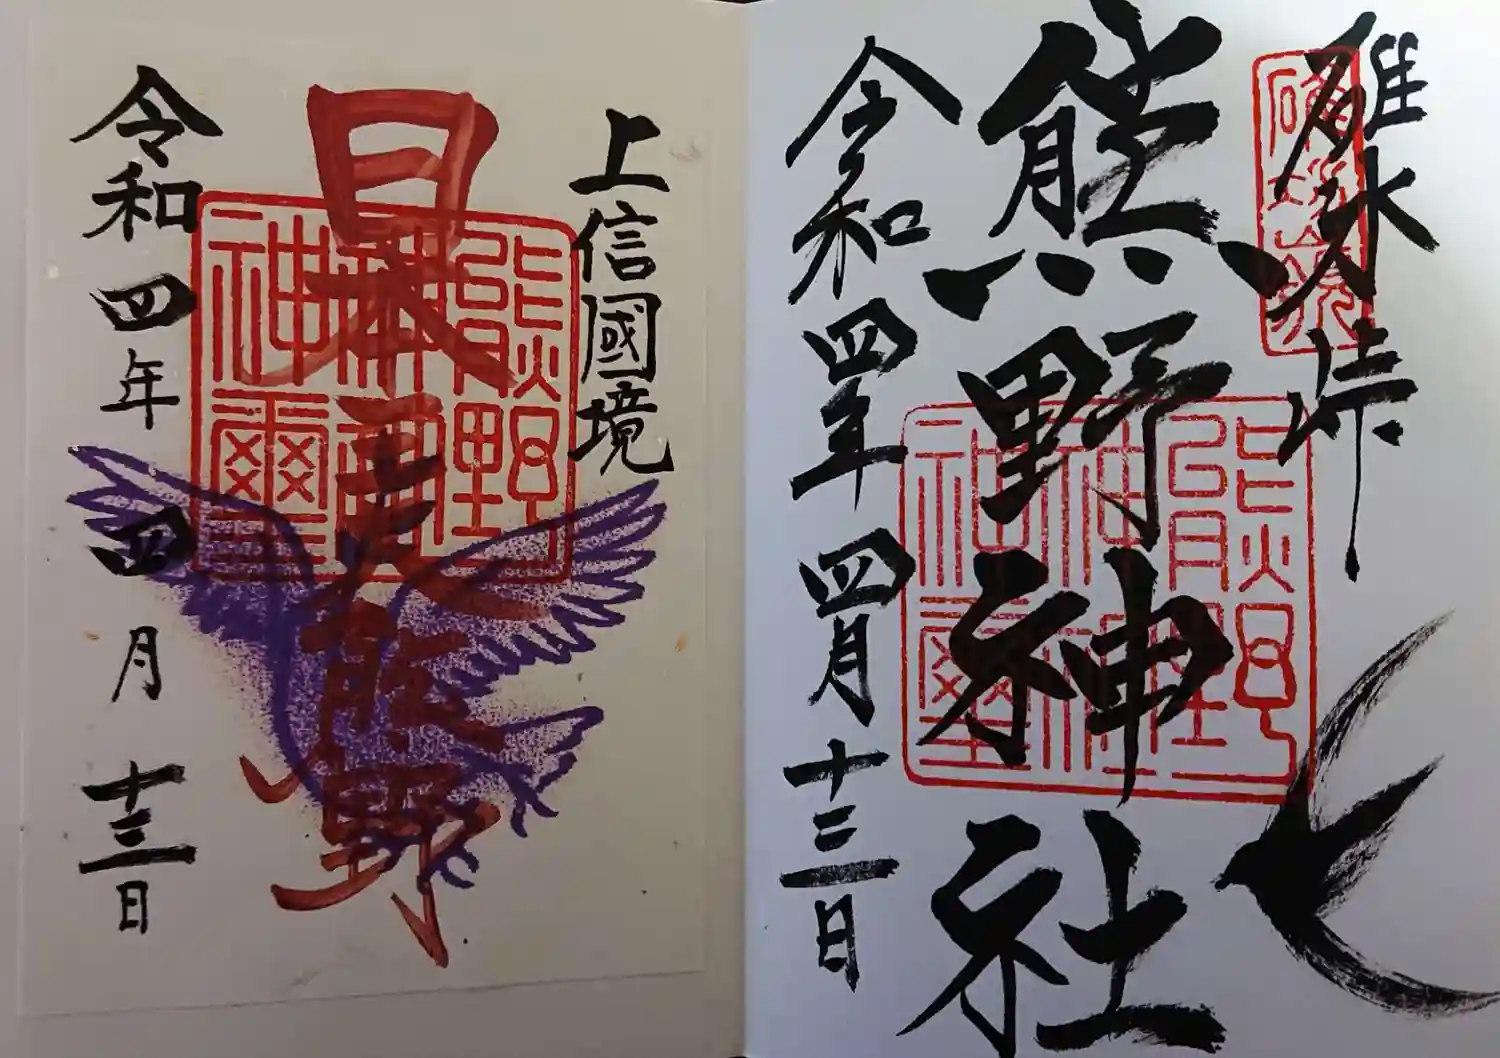 碓氷峠
熊野神社
令和四年四月十三日
上信國境
日本
熊野
令和四年四月十三日
熊野
神社
神璽